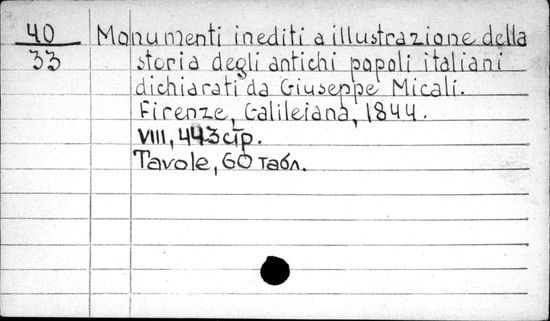 40 Monumenti inediti a illustrazione della
33 storia degli antichi popoli italiani
dichiarati da Giuseppe Micali.
Firenze, Galileiana, 1844.
VIII, 443 стр.
Tavole, 60 табл.